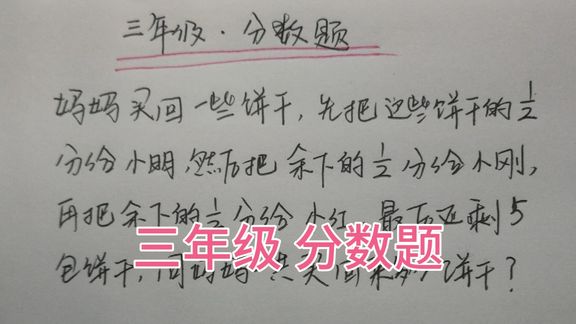 三年级·分数题
妈妈买回一些饼干,先把这些饼干的1/2
分给小明,然后把余下的1/2分给小刚,
再把余下的1/2分给小红,最后还剩5
包饼干,问妈妈一共买回来多少饼干?
三年级 分数题